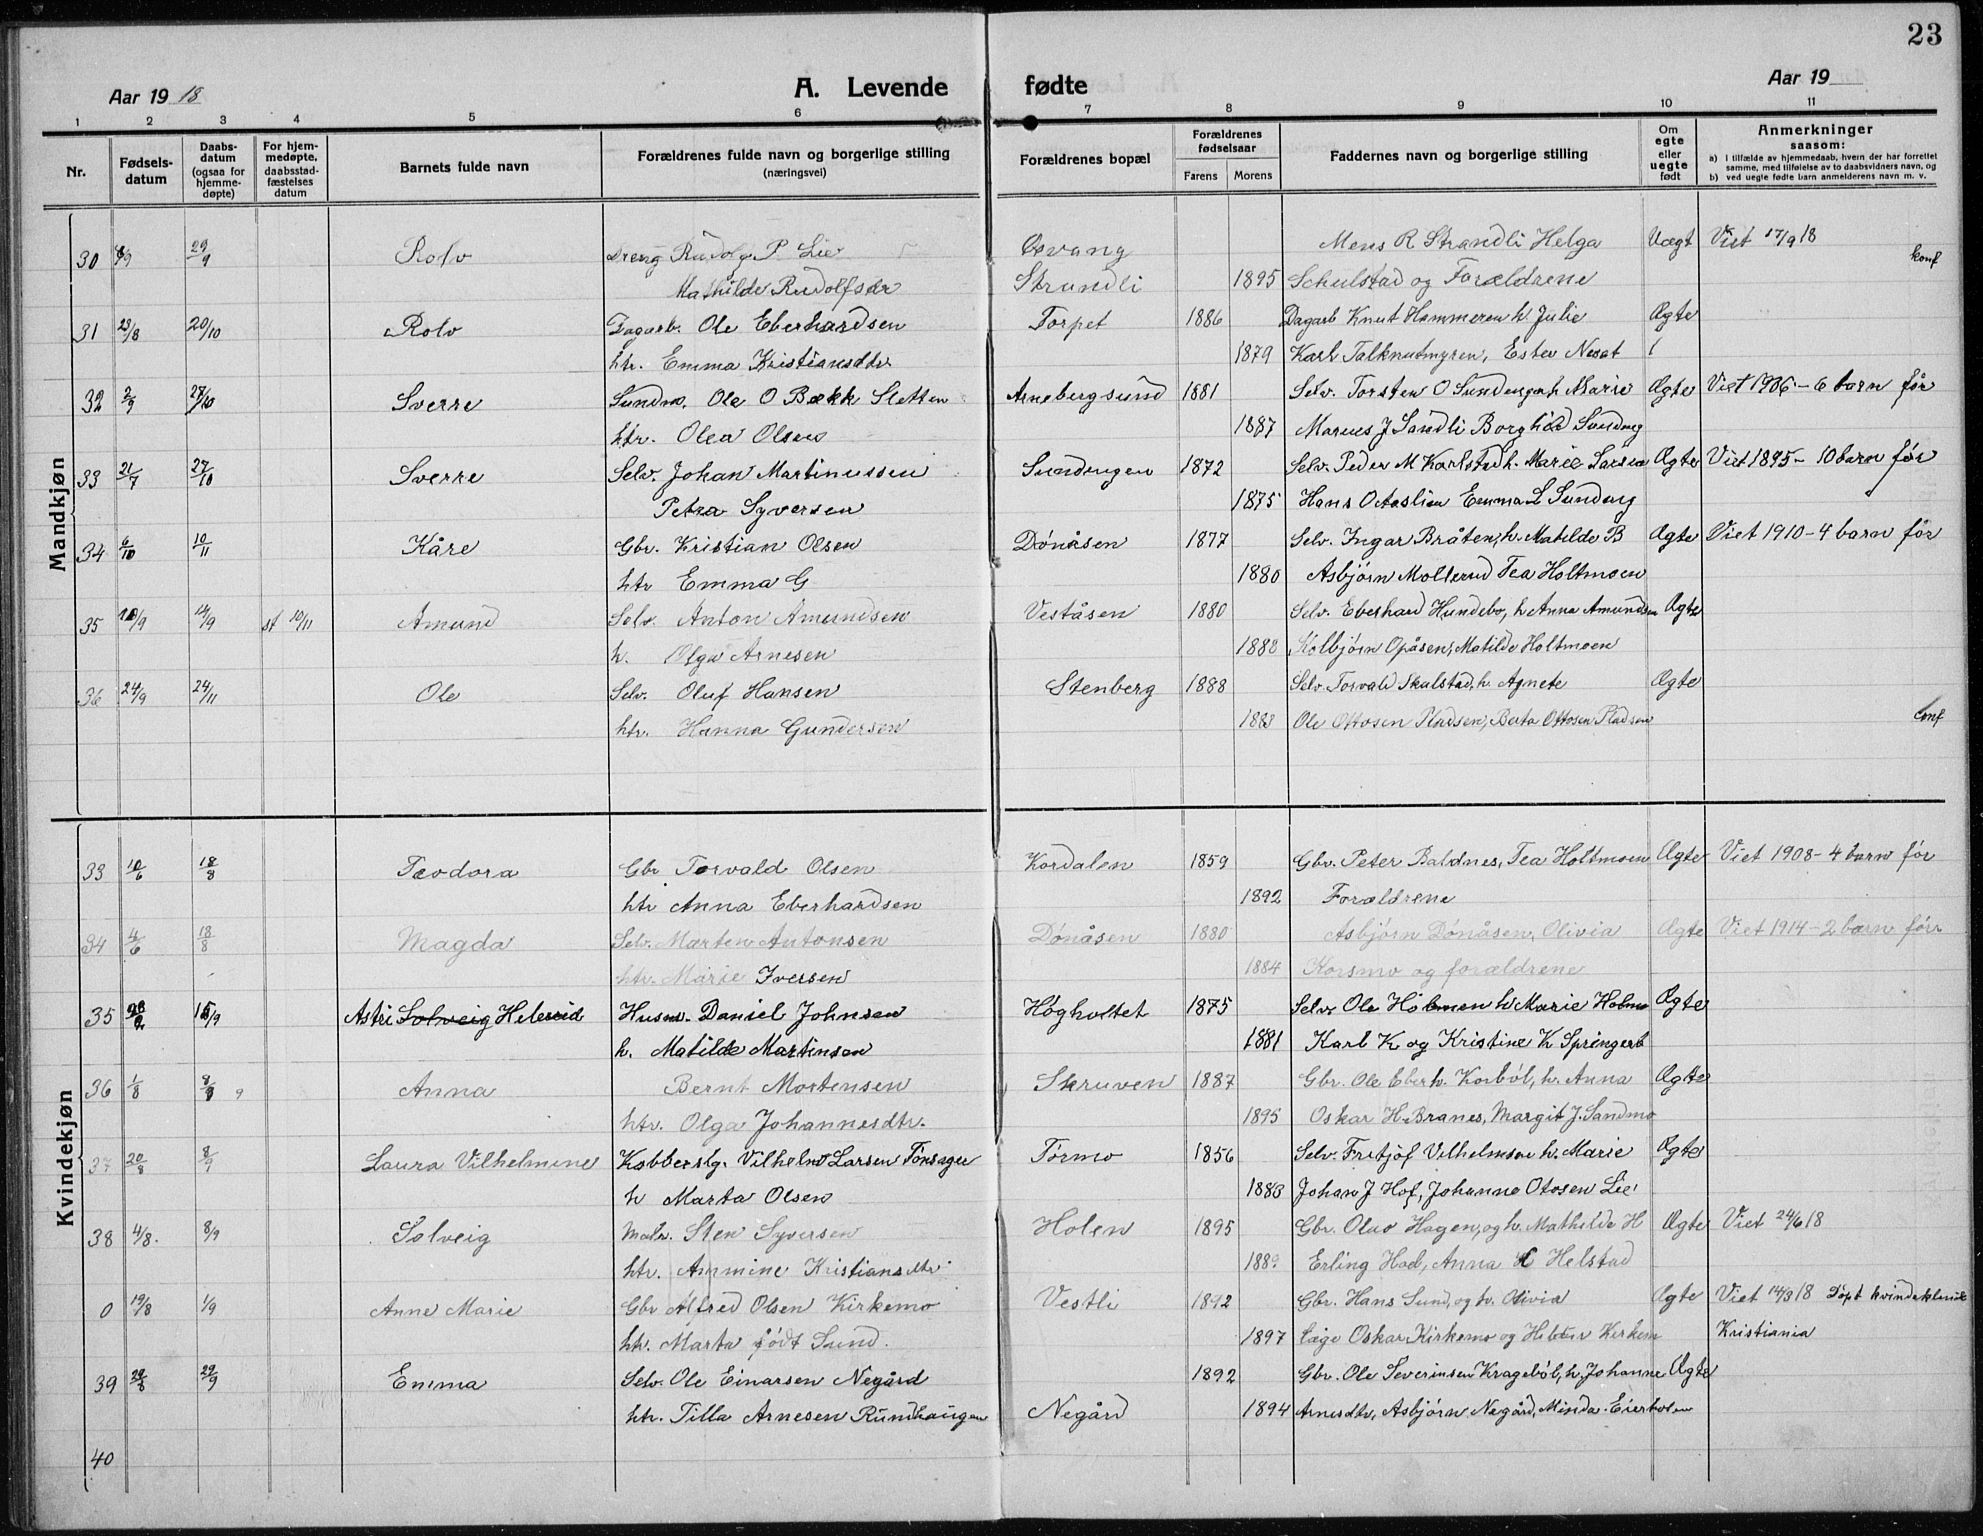 23
Aar 1918 A. Levende fødte Aar 19
1 2 3 4 5 6 7 8 9 10 11
Nr. Fødsels-datum Daabs-datum (ogsaa for hjemme-døpte) For hjem-medøpte, daabsstad-fæstelses datum Barnets fulde navn Forældrenes fulde navn og borgerlige stilling (næringsvei) Forældrenes bopæl Forældrenes fødselsaar Farens Morens Faddernes navn og borgerlige stilling Om egte eller uegte født Anmerkninger saasom:
a) i tilfælde av hjemmedaab, hvem der har forrettet samme, med tilføielse av to daabsvidners navn, og
b) ved uegte fødte barn anmelderens navn m. v.
Mandkjøn
30 29/9 Rolv Dreng Rudolf P Lie Osvang Mens R Strandli Helga Uægt Viet 17/9 18
Mathilde Rudolfsdr Strandli 1895 Schulstad og Forældrene konf
31 23/8 20/10 Rolv Dagarb. Ole Eberhardsen Torpet 1886 Dagarb Knut Hammeren h. Julie Ægte
htr. Emma Kristiansdtr 1879 Karl Talknutmyren, Ester Nesat
32 2/9 27/10 Sverre Ole O Bækk Sletten Arnebergsund 1881 Selv. Torsten O Sundengen h Marie Ægte Viet 1906 - 6 barn før
htr. Olea Olsen 1887 Marius J Sandli Borghild Sundeng
33 21/7 27/10 Sverre Selv. Johan Martinussen Sundengen 1872 Selv. Peder M Karlstad h. Marie Ægte Viet 1895 - 10 barn før
Petra Syversen 1875 Hans Otteslien Emma L Sundeng
34 6/10 10/11 Kåre Gbr. Kristian Olsen Dønåsen 1877 Selv. Ingar Bråten, h. Matilde B Ægte Viet 1910 - 4 barn før
htr Emma G 1880 Asbjørn Mollerud Tea Holtmoen
35 10/9 14/9 st 10/11 Amund Selv. Anton Amundsen Veståsen 1880 Selv. Eberhard Hundebo, h Anna Amundsen Ægte
h. Olga Arnesen 1888 Kolbjørn Opåsen, Matilde Holtmoen
36 24/9 24/11 Ole Selv. Oluf Hansen Stenberg 1888 Selv. Torvald Skulstad, h. Agnete Ægte
htr. Hanna Gundersen 1888 Ole Ottosen Pladsen, Berta Ottosen Pladsen konf
Kvindekjøn
33 10/6 18/8 Teodora Gbr Torvald Olsen Kordalen 1859 Gbr. Peter Baldnes, Tea Holtmoen Ægte Viet 1908 - 4 barn før
htr Anna Eberhardsen 1892 Forældrene
34 4/6 18/8 Magda Selv. Marten Antonsen Dønåsen 1880 Asbjørn Dønåsen, Olivia Ægte Viet 1914 - 2 barn før
htr. Marie Iversen 1884 Korsmo og forældrene
35 15/9 Astri Solveig Helerud Husm. Daniel Johnsen Høgholtet 1875 Selv. Ole Holmen h Marie Holmen Ægte
h. Matilde Martinsen 1881 Karl K og Kristine K Springerb
36 1/8 8/9 9 Anna Bernt Mortensen Skruven 1887 Gbr. Ole Eberh. Korbøl, h. Anna Ægte
htr. Olga Johannesdtr. 1895 Oskar H. Branes, Margit J. Sandmo
37 20/8 8/9 Laura Vilhelmine Kobberslg. Vilhelm Larsen Tønsager Tørmo 1856 Selv. Fritjof Vilhelmsen h. Marie Ægte
h Marta Olsen 1883 Johan J Hof, Johanne Otosen Lie
38 4/8. 8/9 Solveig Sten Syversen Holen 1895 Gbr. Olav Hagen, og h. Mathilde H Ægte Viet 24/6 18
htr. Ammine Kristiansdtr 1889 Erling Hod, Anna Helstad
0 19/8 1/9 Anne Marie Gbr Alfred Olsen Kirkemo Vestli 1892 Gbr. Hans Sund, og h. Olivia Ægte Viet 14/3 18 Døpt kvindeklinik
htr. Marta født Sund. 1897 Oskar Kirkemo og Kirkem Kristiania
39 28/8 29/9 Emma Selv. Ole Einarsen Negård 1892 Gbr. Ole Severinsen Kragebøl, h, Johanne Ægte
htr. Tilla Arnesen Rundhaugen Negård 1894 Arnesdtr, Asbjørn Negård, Minda Eierholen
40